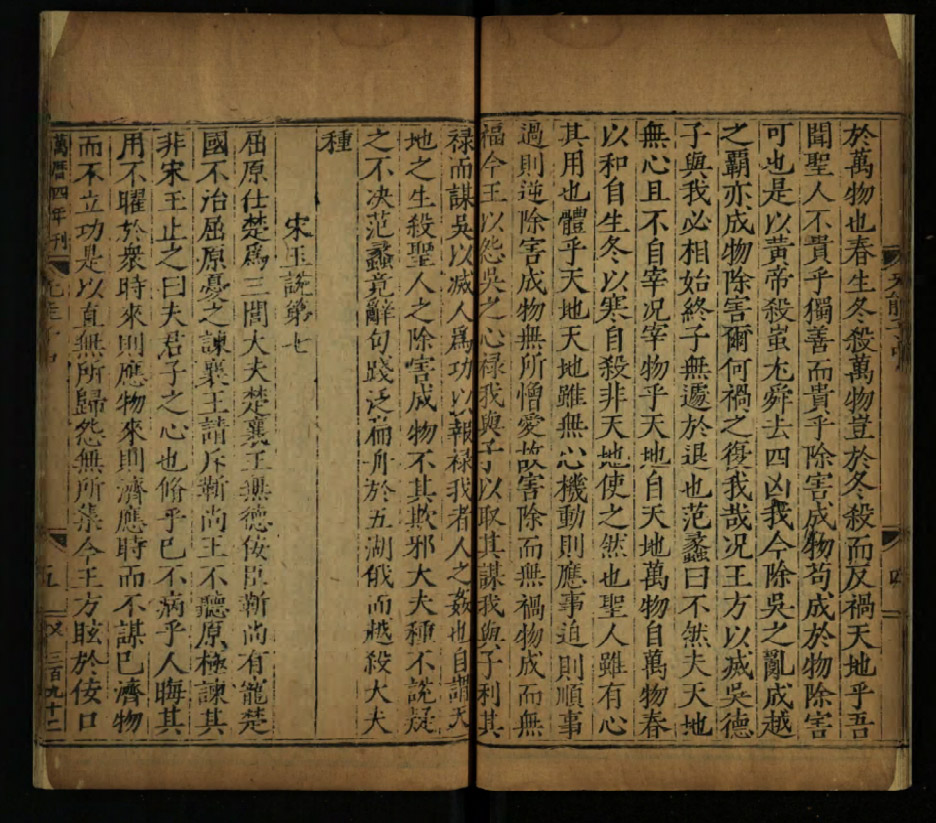 於萬物也春生冬殺萬物豈於冬殺而反禍天地乎吾
聞聖人不貴乎獨善而貴乎除害成物苟成於物除害
可也是以黃帝殺蚩尤舜去四凶我今除吳之亂成越
之霸亦成物除害爾何禍之復我哉况王方以滅吳德
子與我必相始終子無遽於退也范蠡曰不然夫天地
無心且不自宰况宰物乎天地自天地萬物自萬物春
以和自生冬以寒自殺非天地使之然也聖人雖有心
其用也體乎天地天地雖無心機動則應事迫則順事
過則逆除害成物無所憎愛故害除而無禍物成而無
福今王以怨吳之心禄我與子以取其謀我與子利其
禄而謀吳以滅人爲功以報禄我者人之姦也自謂天
地之生殺聖人之除害成物不其欺邪大夫種不說疑
之不決范蠡竟辭句踐泛扁舟於五湖俄而越殺大夫
種
宋玉說第七
屈原仕楚爲三閭大夫楚襄王無德佞臣靳尚有寵楚
國不治屈原憂之諫襄王請斥靳尚王不聽原極諫其
非宋玉止之曰夫君子之心也脩乎已不病乎人晦其
用不曜於衆時來則應物來則濟應時而不謀已濟物
而不立功是以直無所歸怨無所集今王方眩於佞口
萬曆四年刊
五
三百九十二